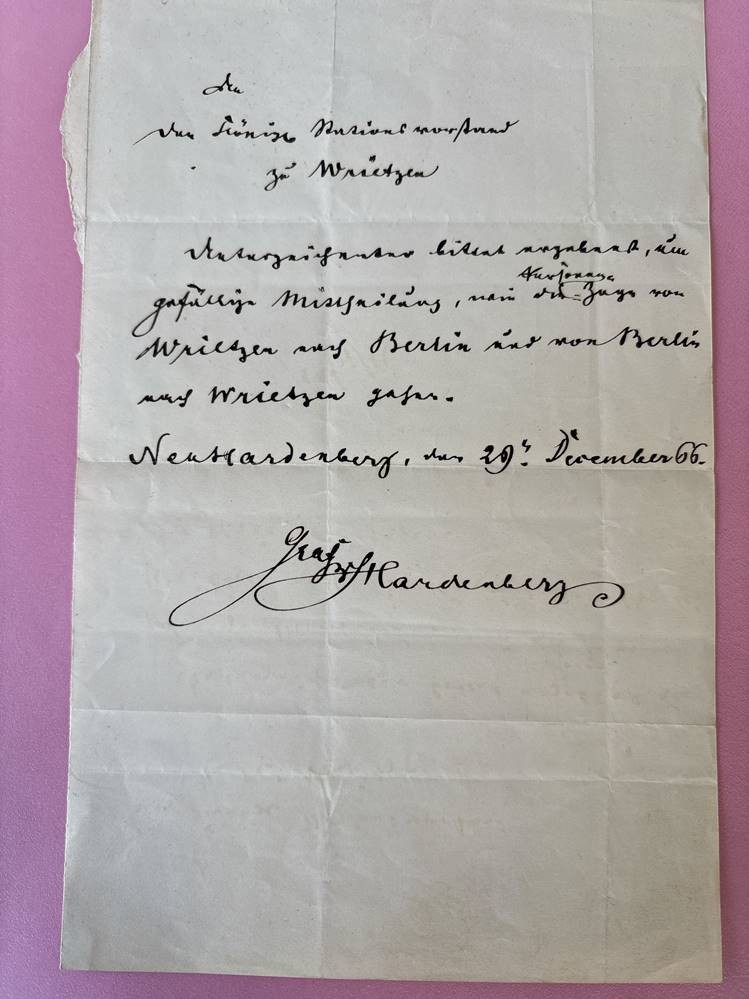 An
den Königl Stationsvorstand
zu Wrietzen
Unterzeichneter bittet ergebenst, um
Personen-
gefällige Mittheilung, wie die Züge von
Wrietzen nach Berlin und von Berlin
nach Wrietzen gehen.
NeuHardenberg, den 29t. December 66.
Graf v Hardenberg